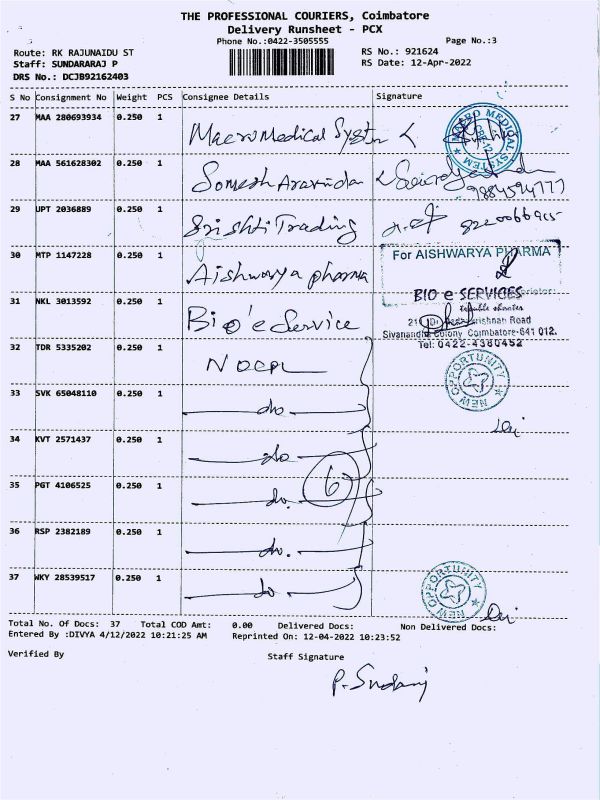 THE PROFESSIONAL COURIERS, Coimbatore
Delivery Runsheet - PCX
Phone No.:0422-3505555
Page No.:3
Route: RK RAJUNAIDU ST
RS No.: 921624
Staff: SUNDARARAJ P
RS Date: 12-Apr-2022
DRS No.: DCJB92162403
S No Consignment No Weight PCS Consignee Details Signature
27 MAA 280693934 0.250 1 Macro Medical System
MACRO MEDICAL SYSTEM
28 MAA 561628302 0.250 1 Somesh Aravindan
29 UPT 2036889 0.250 1 Srishti Trading
30 MTP 1147228 0.250 1 Aishwarya pharma
For AISHWARYA PHARMA
31 NKL 3013592 0.250 1 Bio 'e Service
BIO e SERVICES
Sivanandha Colony Coimbatore-641 012.
Tel: 0422-4380452
32 TDR 5335202 0.250 1 NOCPL
NEW OPPORTUNITY
33 SVK 65048110 0.250 1 do
34 KVT 2571437 0.250 1 do
35 PGT 4106525 0.250 1 do.
6
36 RSP 2382189 0.250 1 do.
37 WKY 28539517 0.250 1 do.
NEW OPPORTUNITY
Total No. Of Docs: 37 Total COD Amt: 0.00 Delivered Docs: Non Delivered Docs:
Entered By :DIVYA 4/12/2022 10:21:25 AM Reprinted On: 12-04-2022 10:23:52
Verified By Staff Signature